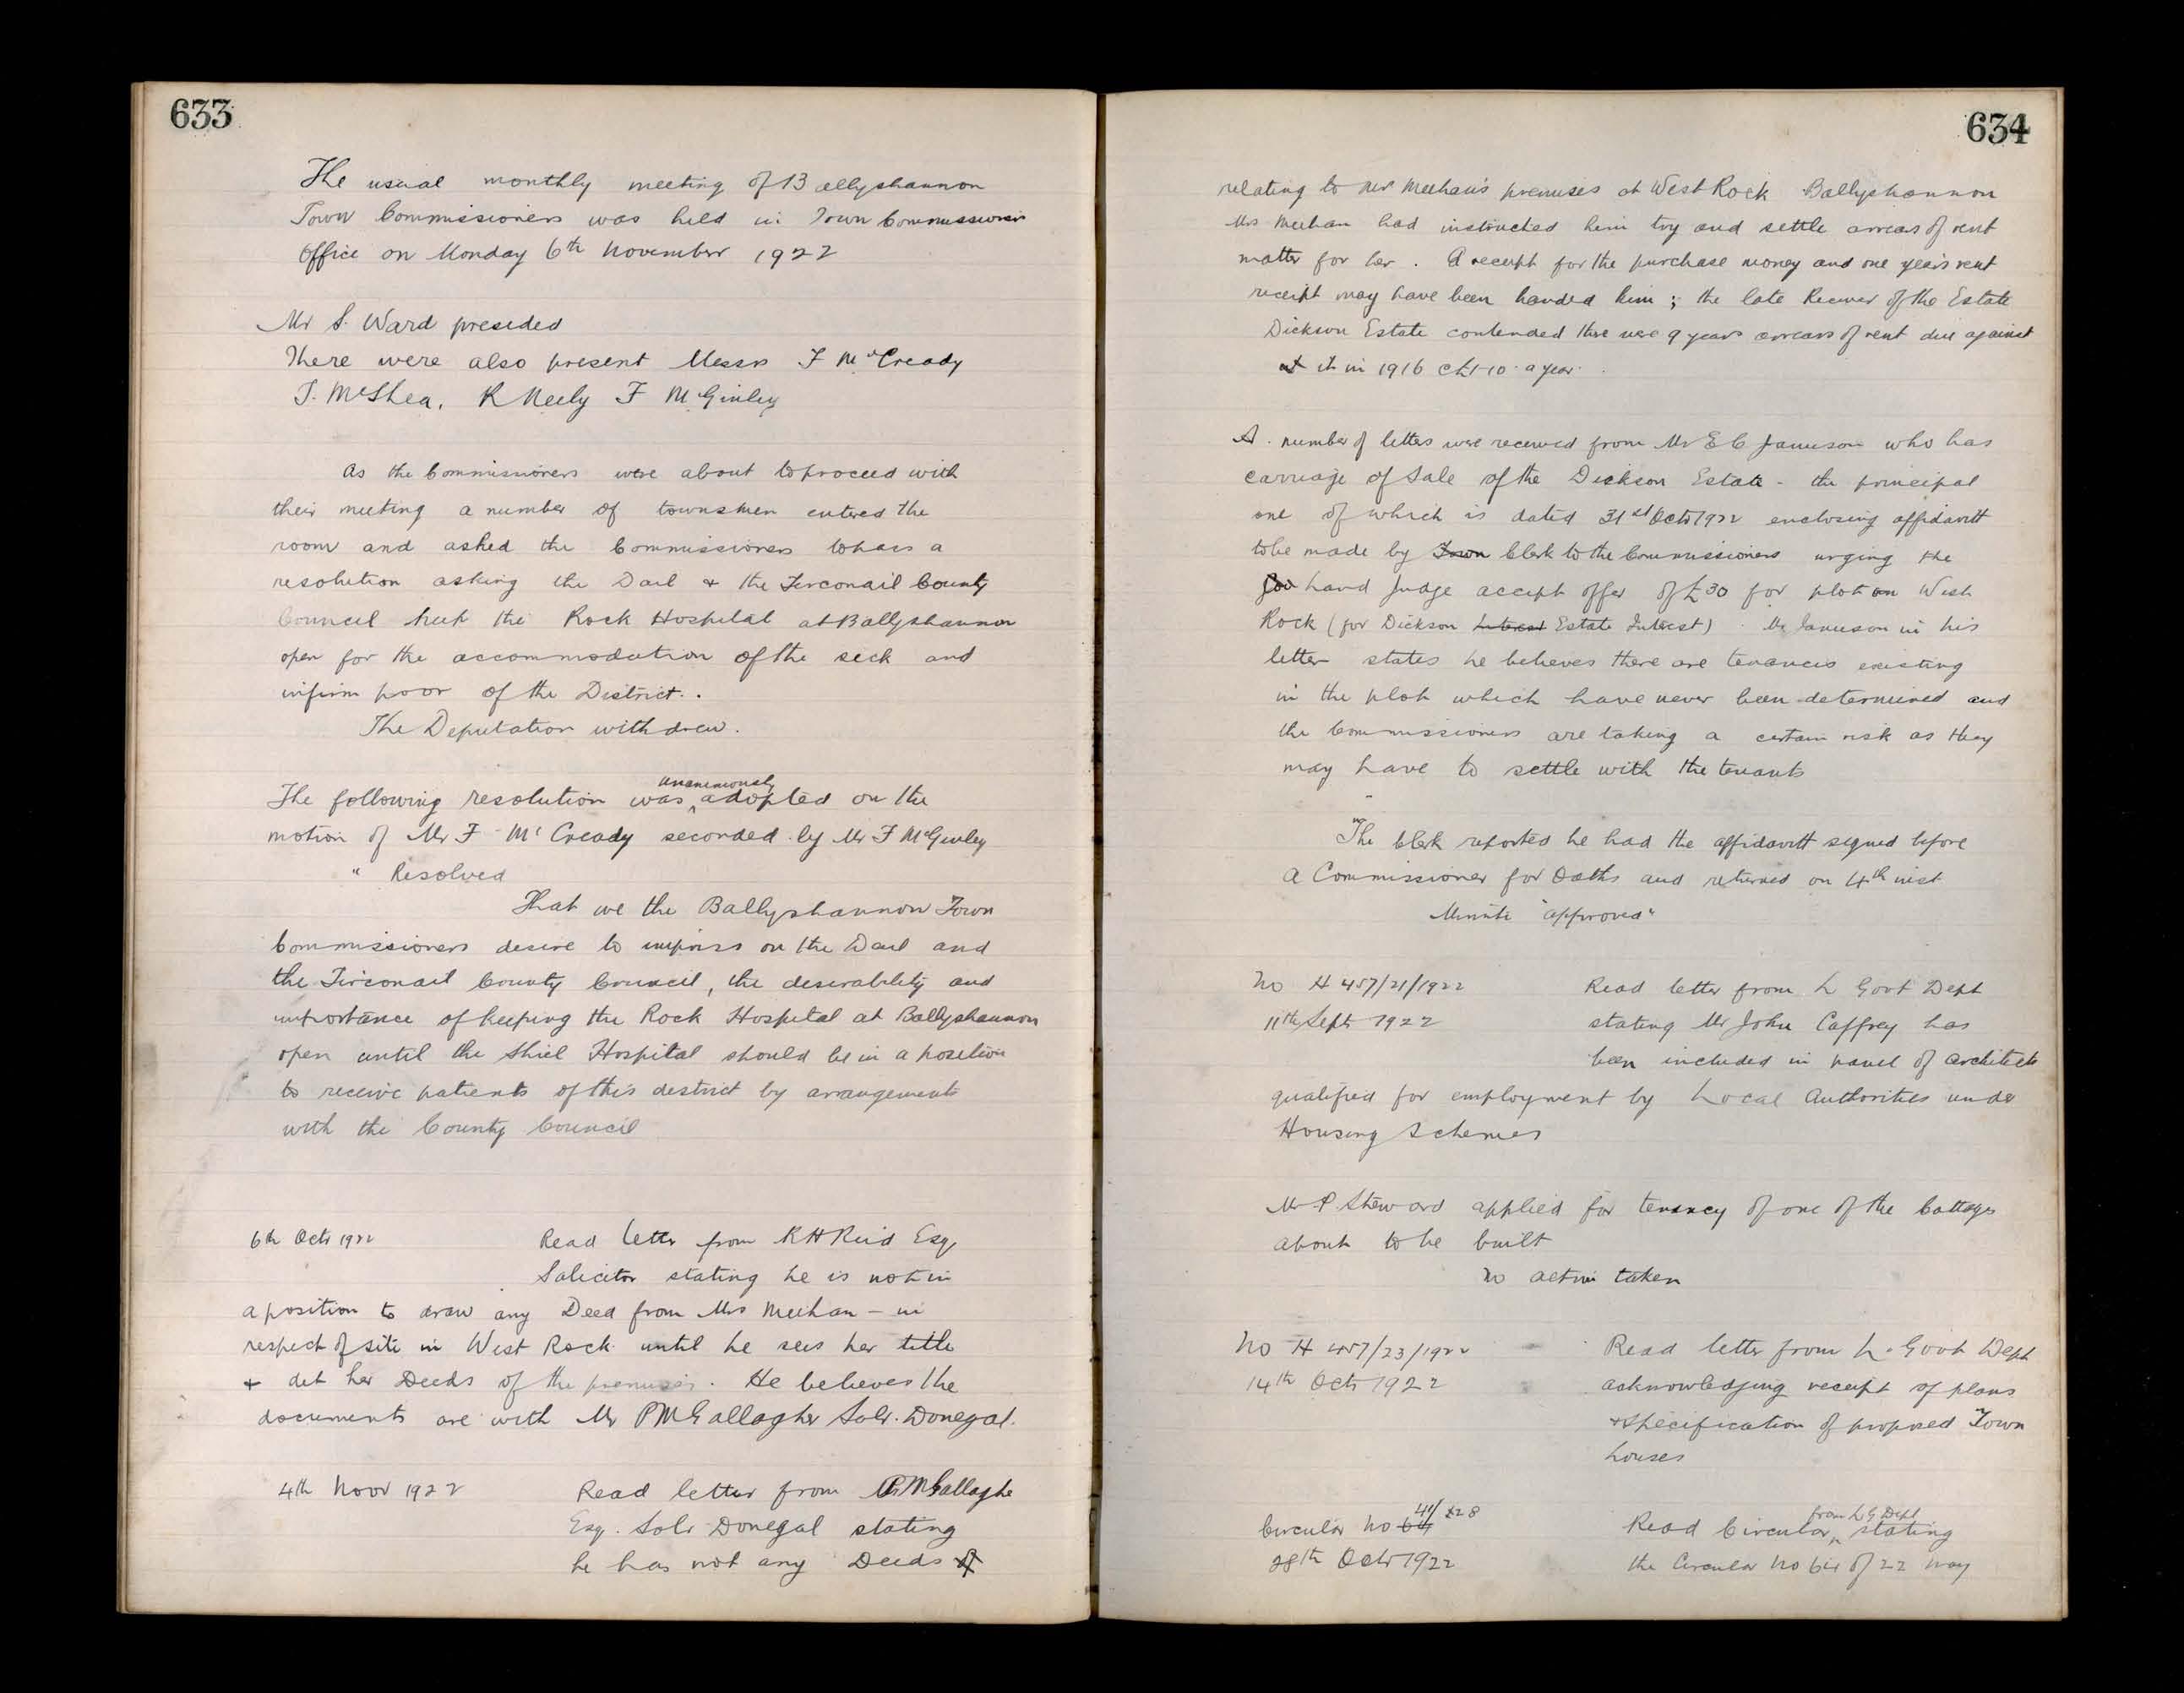 633
The usual monthly meeting of Ballyshannon
Town Commissioners was held in Town Commissioners
Office on Monday 6th November 1922
Mr S. Ward presided
There were also present Messrs F McCready
J. McShea, R Neely F McGinley
As the Commissioners were about to proceed with
their meeting a number of townsmen entered the
room and asked the Commissioners to pass a
resolution asking the Dail & the Tirconail County
Council keep the Rock Hospital at Ballyshannon
open for the accommodation of the sick and
infirm poor of the District.
The Deputation withdrew.
The following resolution was unanimously adopted on the
motion of Mr F McCready seconded by Mr F McGinley
" Resolved
That we the Ballyshannon Town
Commissioners desire to impress on the Dail and
the Tirconail County Council, the desirability and
importance of keeping the Rock Hospital at Ballyshannon
open until the Shiel Hospital should be in a position
to receive patients of this district by arrangements
with the County Council
6th Octr 1922 Read letter from R H Reid Esq
Solicitor stating he is not in
a position to draw any Deed from Mrs Meehan – in
respect of site in West Rock until he sees her title
& det her Deeds of the premises. He believes the
documents are with Mr P M Gallagher Solr. Donegal.
4th Novr 1922 Read letter from P M Gallagher
Esq. Solr Donegal stating
he has not any Deeds
634
relating to Mrs Meehan's premises at West Rock Ballyshannon
Mrs Meehan had instructed him try and settle arrears of rent
matter for her. A receipt for the purchase money and one years rent
receipt may have been handed him; the late Receiver of the Estate
Dickson Estate contended there were 9 years arrears of rent due against
it in 1916 @ £1-10 a year.
A number of letters were received from Mr E C Jamison who has
carriage of Sale of the Dickson Estate - the principal
one of which is dated 31st Octr 1922 enclosing affidavitt
to be made by Town Clerk to the Commissioners urging the
Land Judge accept offer of £30 for plot on West
Rock (for Dickson Interest Estate Interest). Mr Jamison in his
letter states he believes there are tenancies existing
in the plot which have never been determined and
the Commissioners are taking a certain risk as they
may have to settle with the tenants
The Clerk reported he had the affidavitt signed before
a Commissioner for Oaths and returned on 4th inst
Minute "approved"
No H 457/21/1922 Read letter from L Govt Dept
11th Septr 1922 stating Mr John Caffrey has
been included in panel of architects
qualified for employment by Local Authorities under
Housing Schemes
Mr P. Steward applied for tenancy of one of the Cottages
about to be built
No action taken
No H 457/23/1922 Read letter from L. Govt Dept
14th Octr 1922 acknowledging receipt of plans
& specification of proposed Town
houses
Circular No 41/228 Read Circular from L G Dept stating
28th Octr 1922 the Circular No of 22 May